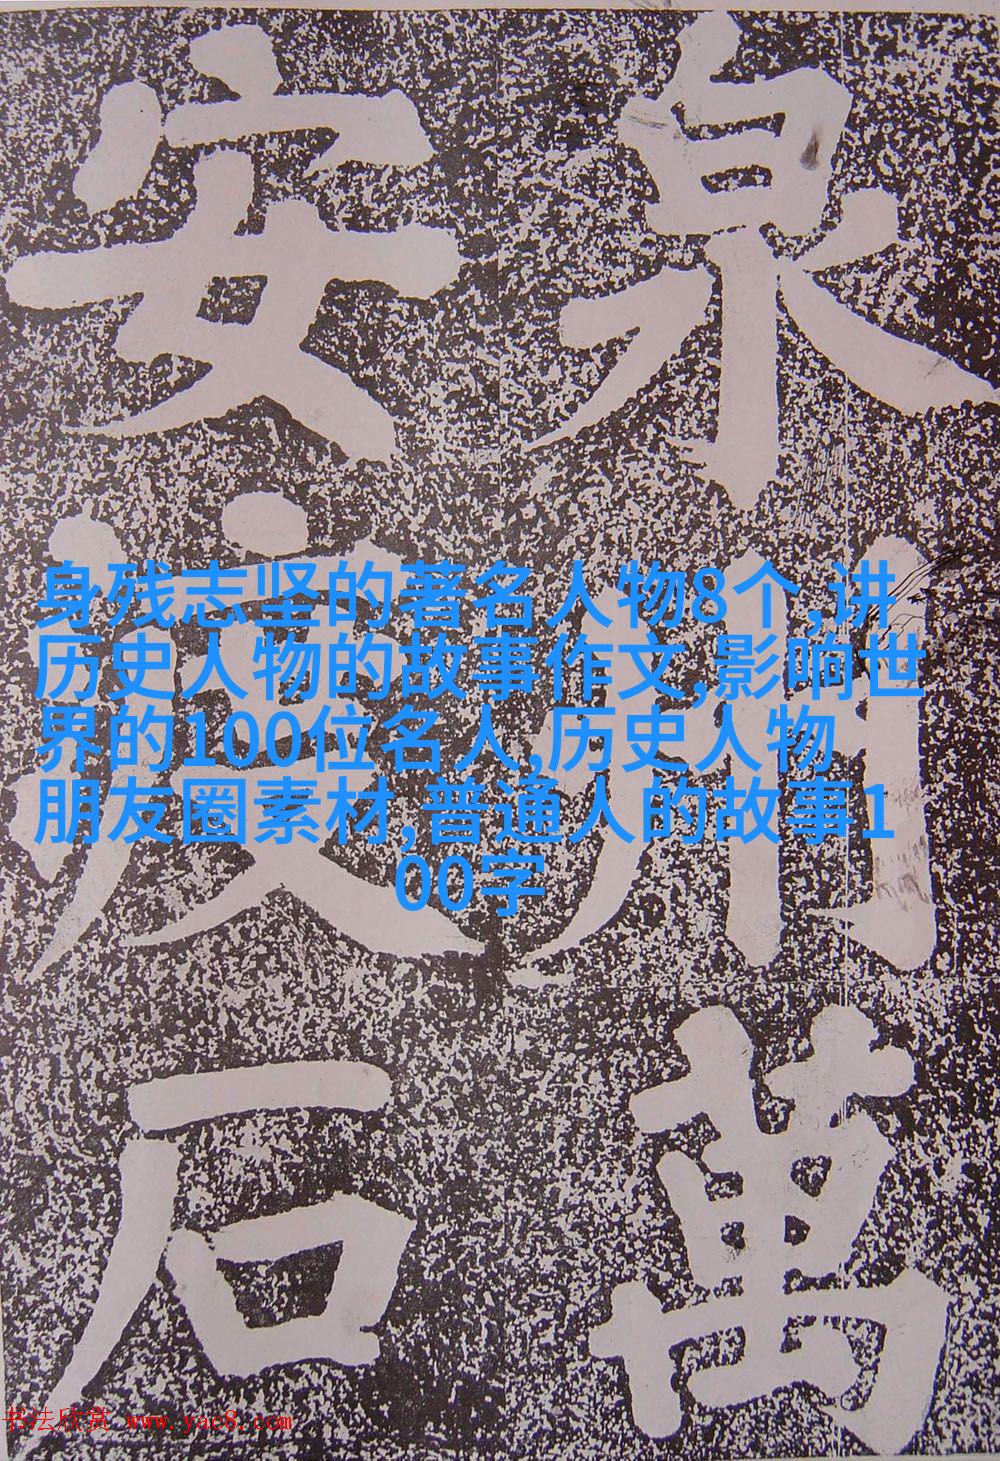 泉州萬
安渡石
身残志坚的著名人物8个,讲
历史人物的故事作文,影响世
界的100位名人,历史人物
朋友圈素材,普通人的故事1
00字
书法欣赏 www.yac8.com